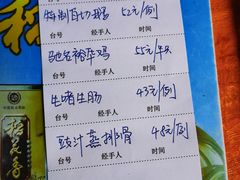 特制白切鸡 52元/例
台号 经手人 时间
驰名猪杂鸡 55元/半只
台号 经手人 时间
生啫生肠 43元/例
台号 经手人 时间
豉汁蒸排骨 48元/例
台号 经手人 时间
稻花香